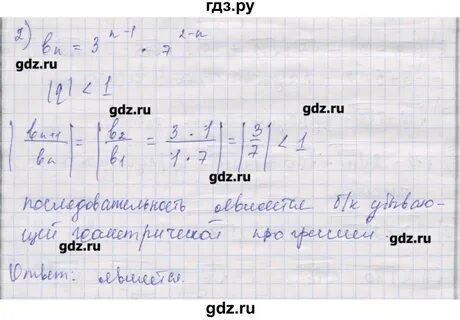 гдз.ру
2) bₙ = 3ⁿ⁻¹ · 7²⁻ⁿ
gdz.ru
gdz.ru
|q| < 1
gdz.ru
gdz.ru
|bₙ₊₁ / bₙ| = |b₂ / b₁ = 3 · 1 / 1 · 7| = |3 / 7| < 1
gdz.ru
gdz.ru
последовательность является б/к убываю-
щей геометрической прогрессией
gdz.ru
gdz.ru
Ответ: является.
gdz.ru
gdz.ru